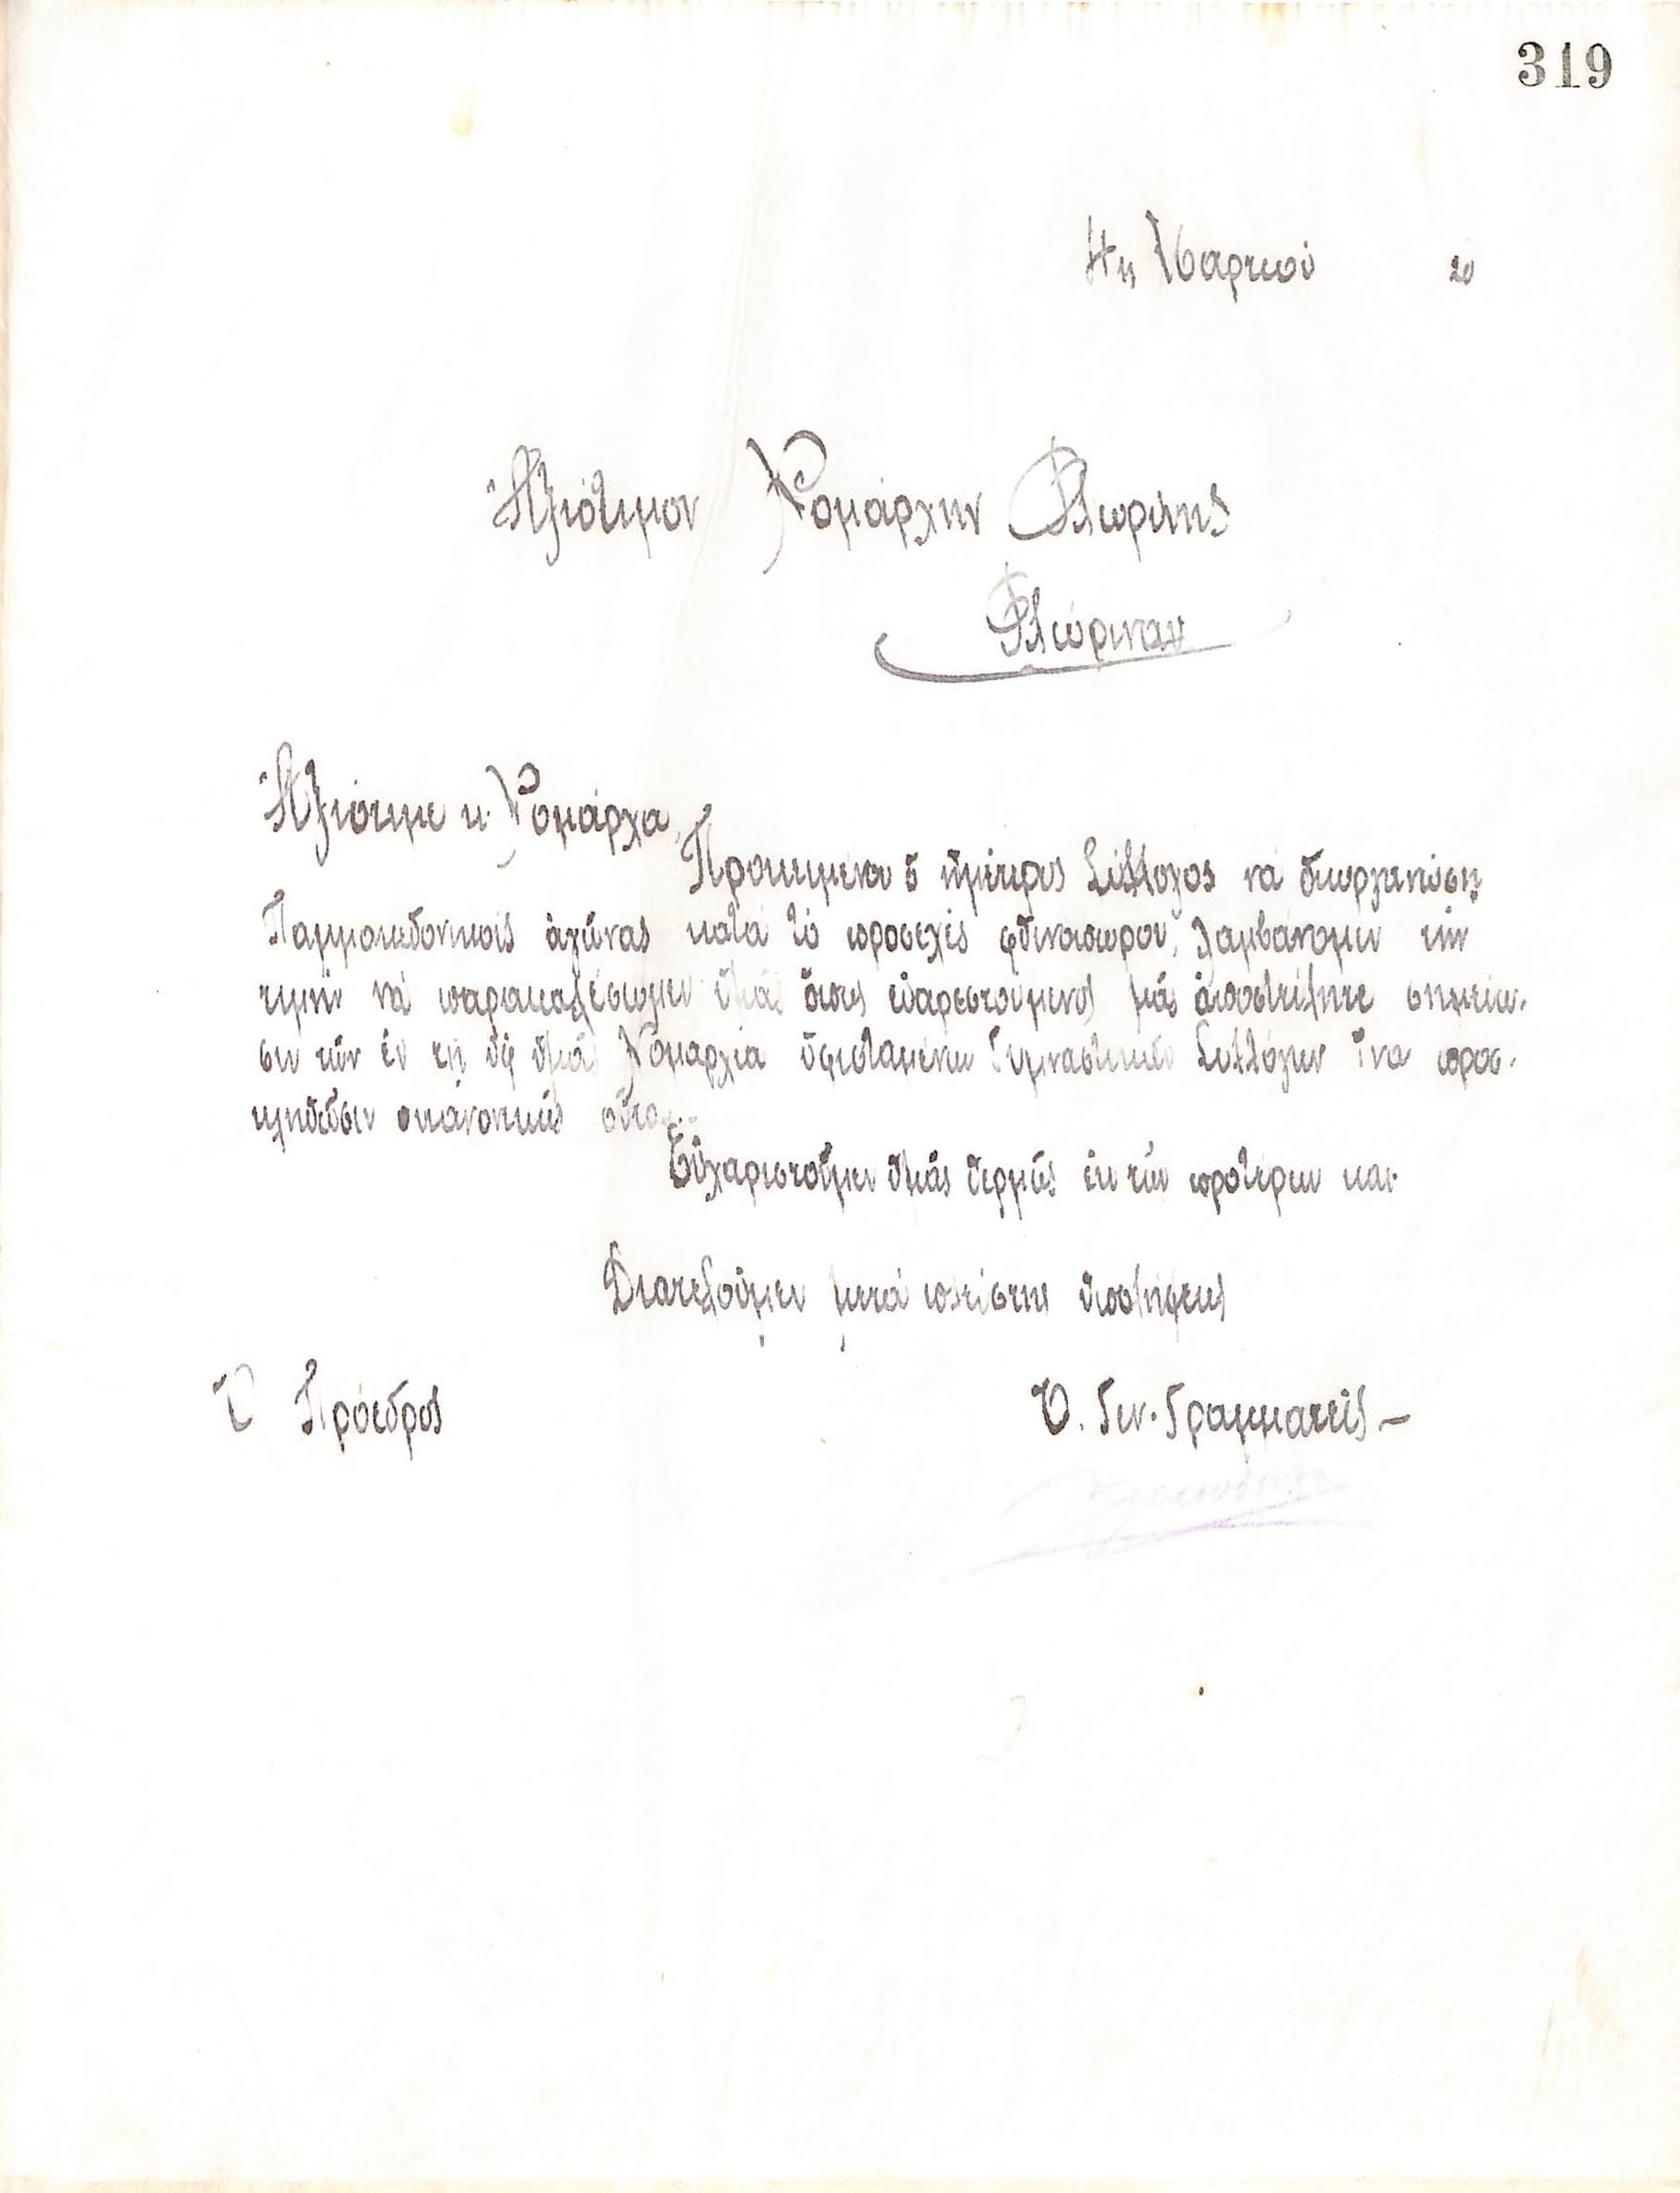 319
4η Μαρτίου 20
Ἀξιότιμον Νομάρχην Φλωρίνης
Φλώριναν
Ἀξιότιμε κ. Νομάρχα,
Προκειμένου ὁ ἡμέτερος Σύλλογος νὰ διωργανώσῃ
Παμμακεδονικοὺς ἀγῶνας κατὰ τὸ προσεχὲς φθινόπωρον, λαμβάνομεν τὴν
τιμὴν νὰ παρακαλέσωμεν ὑμᾶς ὅπως εὐαρεστούμενος μᾶς ἀποστείλητε σημείω-
σιν τῶν ἐν τῇ ὑφ' ὑμᾶς Νομαρχίᾳ ὑφισταμένων Γυμναστικῶν Συλλόγων ἵνα προσ-
κληθῶσιν
Εὐχαριστοῦμεν ὑμᾶς θερμῶς ἐκ τῶν προτέρων καὶ
Διατελοῦμεν μετὰ πλείστης ὑπολήψεως
Ὁ Πρόεδρος Ὁ. Γεν. Γραμματεὺς –